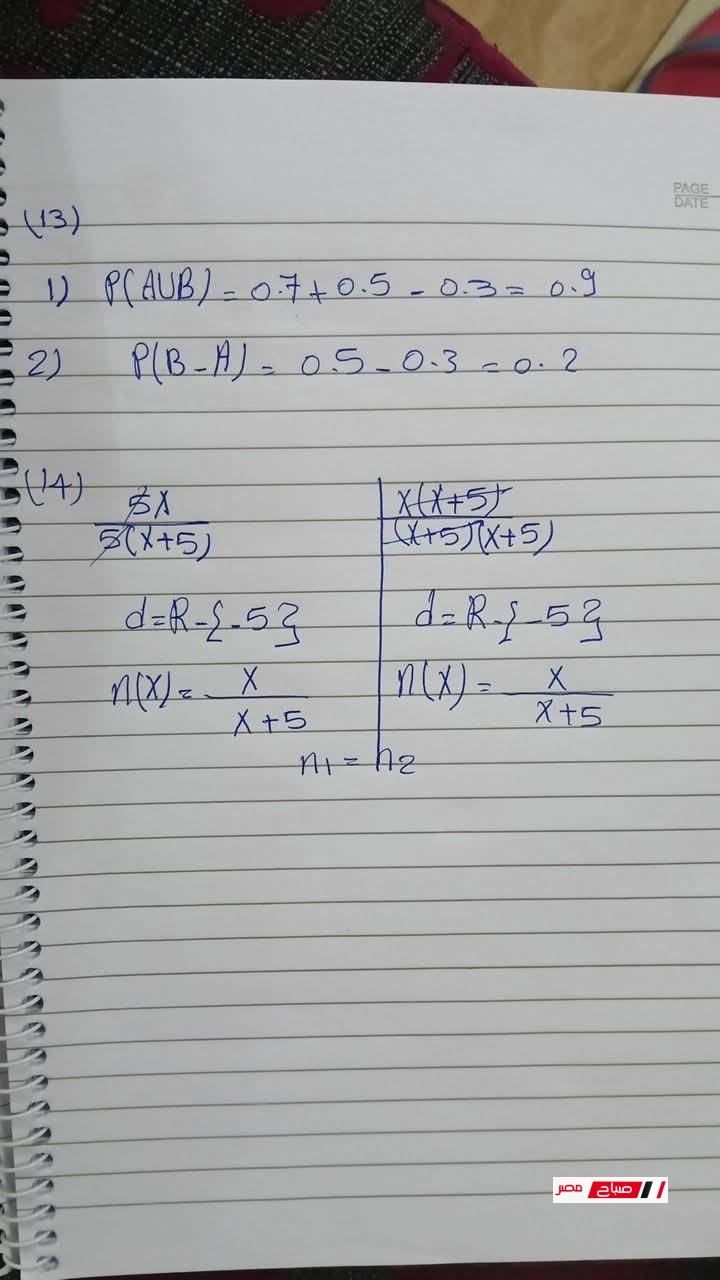 PAGE
DATE
(13)
1) P(AUB) = 0.7 + 0.5 - 0.3 = 0.9
2) P(B-A) = 0.5 - 0.3 = 0.2
(14)
5x / 5(x+5)
d = R - {-5}
n(x) = x / x+5
x(x+5) / (x+5)(x+5)
d = R - {-5}
n(x) = x / x+5
n1 = n2
صباح مصر